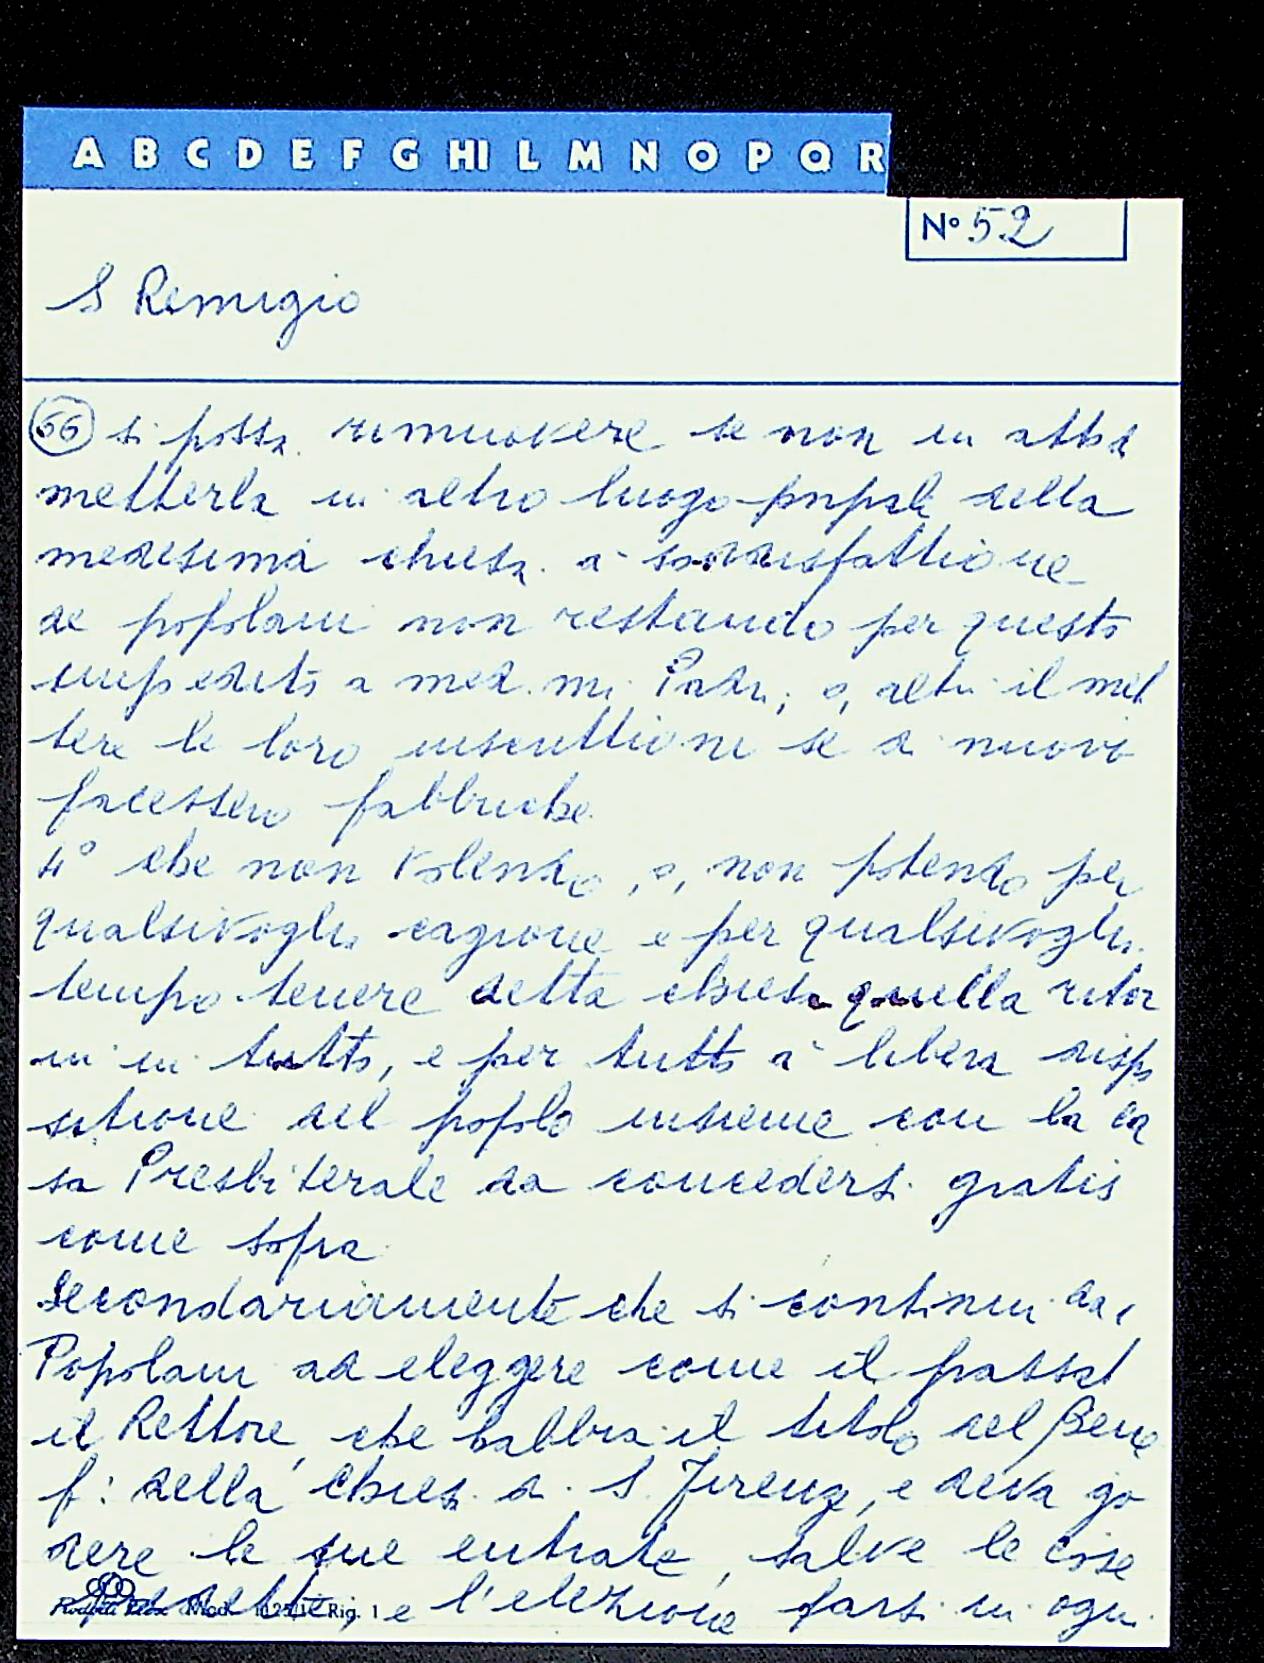 A B C D E F G HI L M N O P Q R
Nº 52
S Remigio
(66) si possa rimuovere se non in atto di
metterla in altro luogo pnpale della
medesima chiesa a soddisfattione
de popolani non restando per questo
impedito a med.mi Padri, o, altri il met
tere le loro inscrittioni se di nuovo
facessero fabbriche.
4º che non volendo, o, non potendo per
qualsivoglia cagione e per qualsivoglia
tempo tenere detta chiesa quella ritor
ni in tutto, e per tutto a libera dispo
sitione del popolo insieme con la ca
sa Presbiterale da concedersi gratis
come sopra
Secondariamente che si continui da i
Popolani ad eleggere come il passat
il Rettore, che habbia il titolo del Bene
f: della chiesa di S. Firenze, e deva go
dere le sue entrate, salve le cose
e l'elezzione farsi in ogni